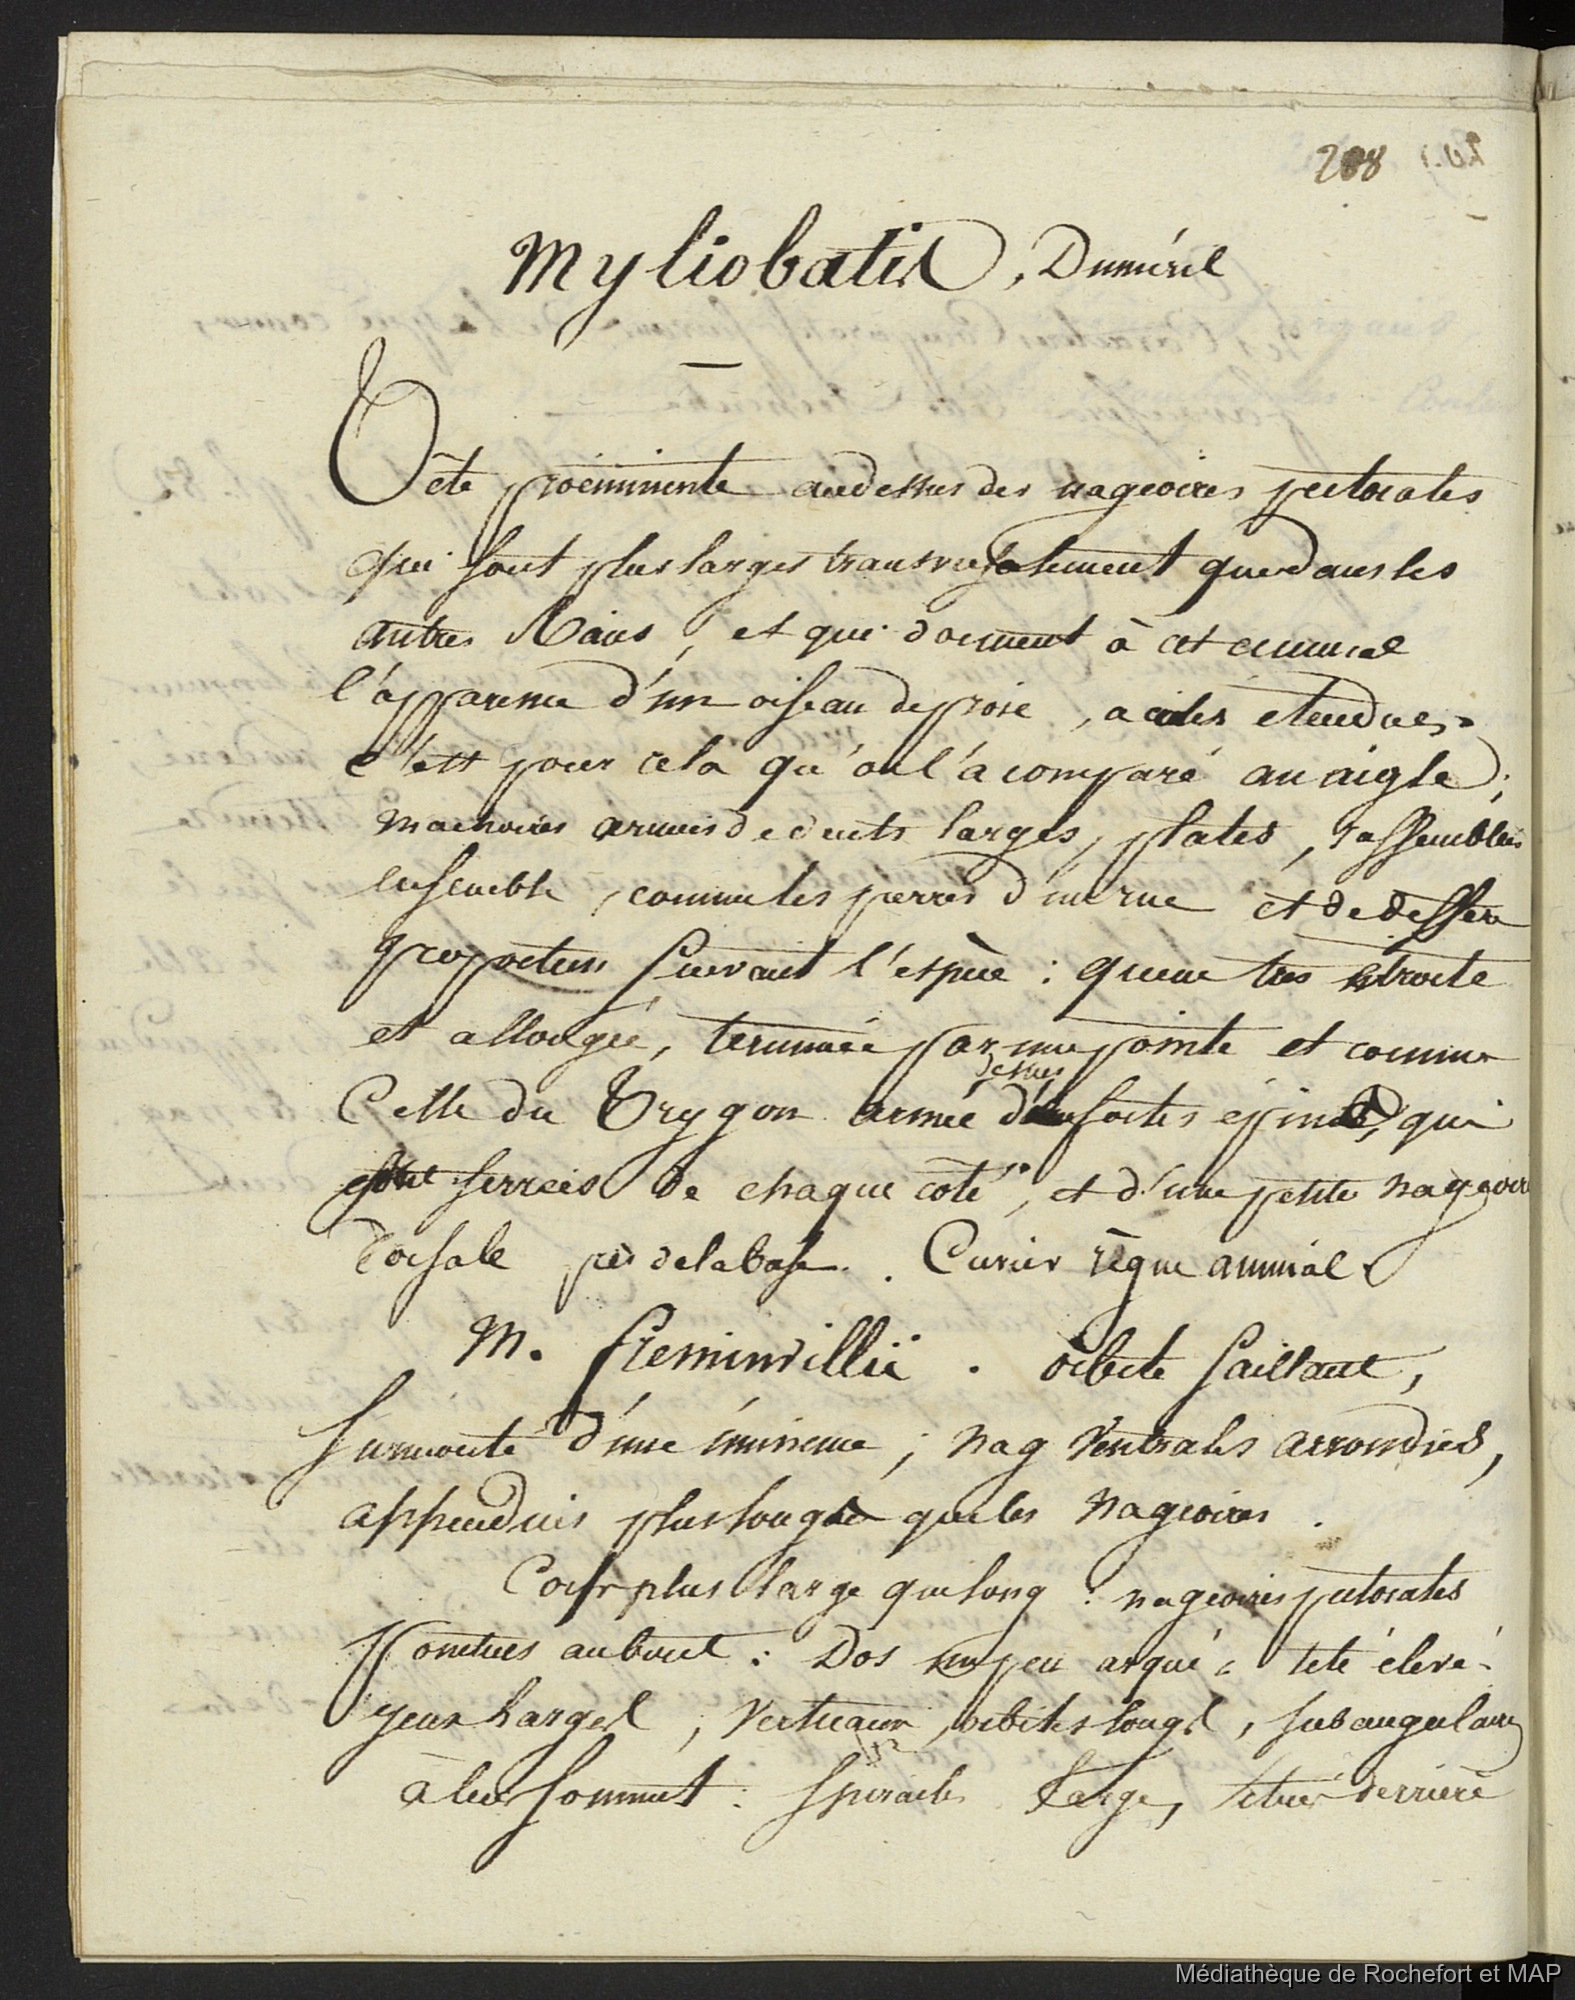 208
Myliobatis, Duméril
Tête proéminente audessus des nageoires pectorales
qui sont plus larges transversalement que dans les
autres Raies, et qui donnent à cet animal
l'apparence d'un oiseau de proie, a ailes etendues,
c'est pour cela qu'on l'a comparé au aigle;
machoires armées de dents larges, plates, rassemblées
ensemble, comme les pierres d'une rue et de
proportions suivant l'espèce : queue tres etroite
et allongée, terminée par une pointe et comme
dessus
Celle du Trygon armée de fortes épines, qui
sont serrées de chaque coté, et d'une petite nageoire
dorsale près de la base. Cuvier règne animal
M. freminvillii. orbite saillant,
surmonté d'une éminence ; nag ventrales arrondies,
appendices plus longs que les nageoires.
Corps plus large que long : nageoires pectorales
pointues au bout : Dos un peu arqué : tête élevé.
yeux larges, verticaux, orbites longs, subangulaires
à leur sommet. spiracles large, situé derrière
Médiathèque de Rochefort et MAP